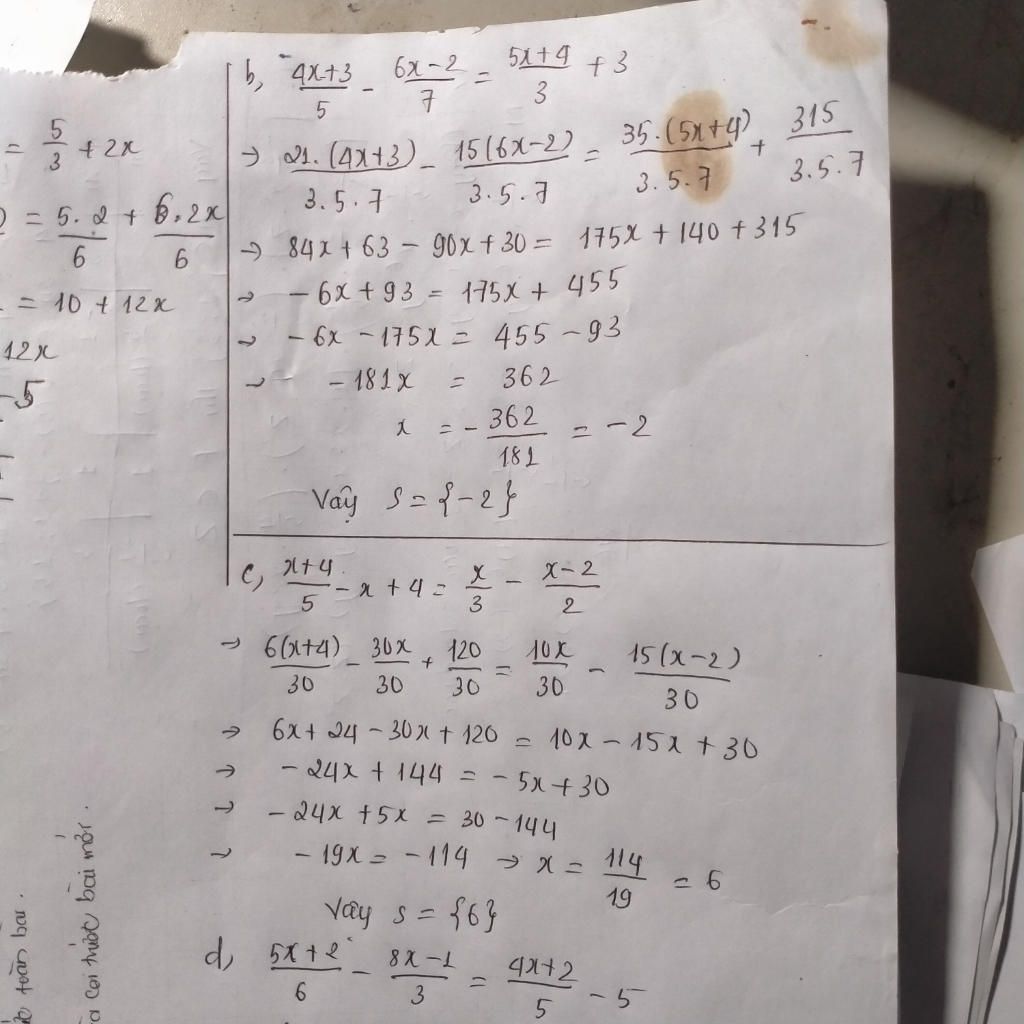 = 5/3 + 2x
= 5.2/6 + 6.2x/6
= 10 + 12x
12x
-5
b, (4x+3)/5 - (6x-2)/7 = (5x+4)/3 + 3
→ 21.(4x+3)/3.5.7 - 15(6x-2)/3.5.7 = 35.(5x+4)/3.5.7 + 315/3.5.7
→ 84x + 63 - 90x + 30 = 175x + 140 + 315
→ -6x + 93 = 175x + 455
→ -6x - 175x = 455 - 93
→ -181x = 362
x = -362/181 = -2
Vậy S = {-2}
c, (x+4)/5 - x + 4 = x/3 - (x-2)/2
→ 6(x+4)/30 - 30x/30 + 120/30 = 10x/30 - 15(x-2)/30
→ 6x + 24 - 30x + 120 = 10x - 15x + 30
→ -24x + 144 = -5x + 30
→ -24x + 5x = 30 - 144
→ -19x = -114 → x = 114/19 = 6
Vậy S = {6}
d, (5x+2)/6 - (8x-1)/3 = (4x+2)/5 - 5